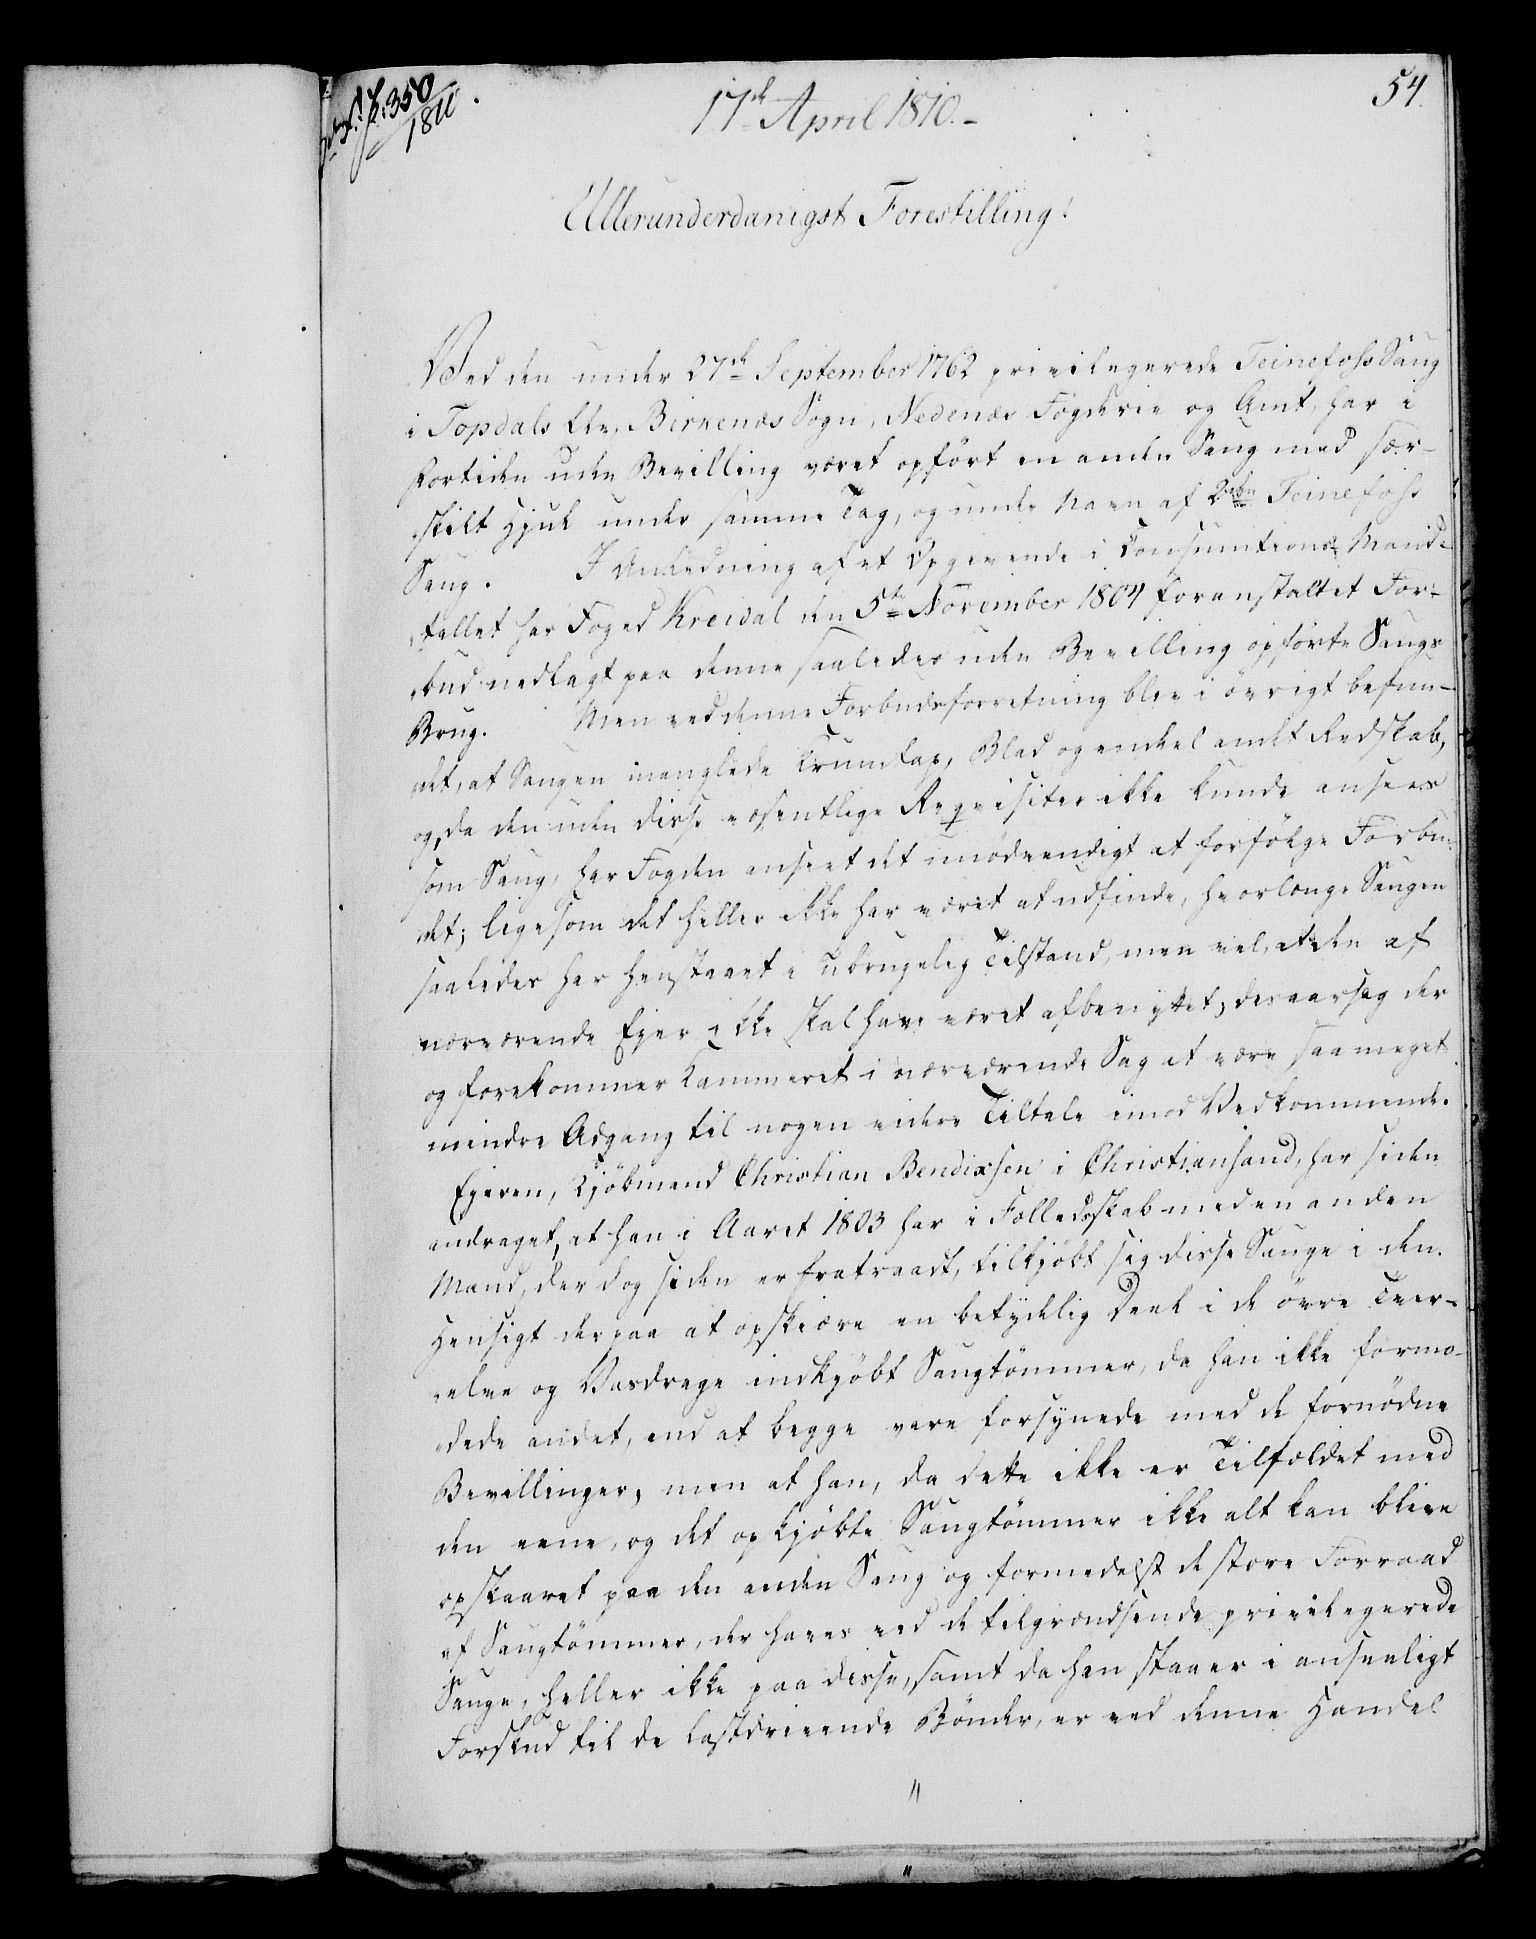 f. 350
1811
54.
17de April 1810.-
Allerunderdanigst Forestilling!
Ved den under 27de September 1762 privilegerede Teinefoss Saug
i Topdals Elv, Birkenæs Sogn, Nedenæs Fogderie og Amt, har i
Fortiden uden Bevilling været opført en anden Saug med sær-
skilt Hjul under samme Tag, og under Navn af 2den Teinefoss
Saug. I Anledning af et Opgivende i Consumtions Mand-
tallet har Foged Kreidal den 5te November 1804 foranstaltet For-
bud nedlagt paa denne saaledes uden Bevilling opførte Saugs
Brug. Men ved denne Forbudsforretning blev i øvrigt befun-
det, at Saugen manglede Trumlap, Blad og endeel andet Redskab,
og, da den uden disse væsentlige Reqvisiter ikke kunde ansees
som Saug, har Fogden anseet det unødvendigt at forfølge Forbu-
det; ligesom det heller ikke har været at udfinde, hvorlænge Saugen
saaledes har henstaaet i ubrugelig Tilstand, men vel, at den af
nærværende Ejer ikke skal have været afbenyttet; desaarsag der
og forekommer Kammeret i nærværende Sag at være saa meget
mindre Adgang til nogen videre Tiltale imod Vedkommende.
Ejeren, Kjøbmand Christian Bendixsen i Christiansand, har siden
andraget, at han i Aaret 1803 har i Fælledsskab med en anden
Mand, der dog siden er fratraadt, tilkjøbt sig disse Sauge i den
Hensigt derpaa at opskiære en betydelig Deel i de øvre Tver-
elve og Vasdrage indkjøbt Saugtømmer, da han ikke formo-
dede andet, end at begge vare forsynede med de fornødne
Bevillinger, men at han, da dette ikke er Tilfældet med
den eene, og det opkjøbte Saugtømmer ikke alt kan blive
opskaaret paa den anden Saug og formedelst de store Forraad
af Saugtømmer, der haves ved de tilgrændsende privilegerede
Sauge, heller ikke paa disse, samt da han staaer i anseeligt
Forskud til de lastdrivende Bønder, er ved denne Handel